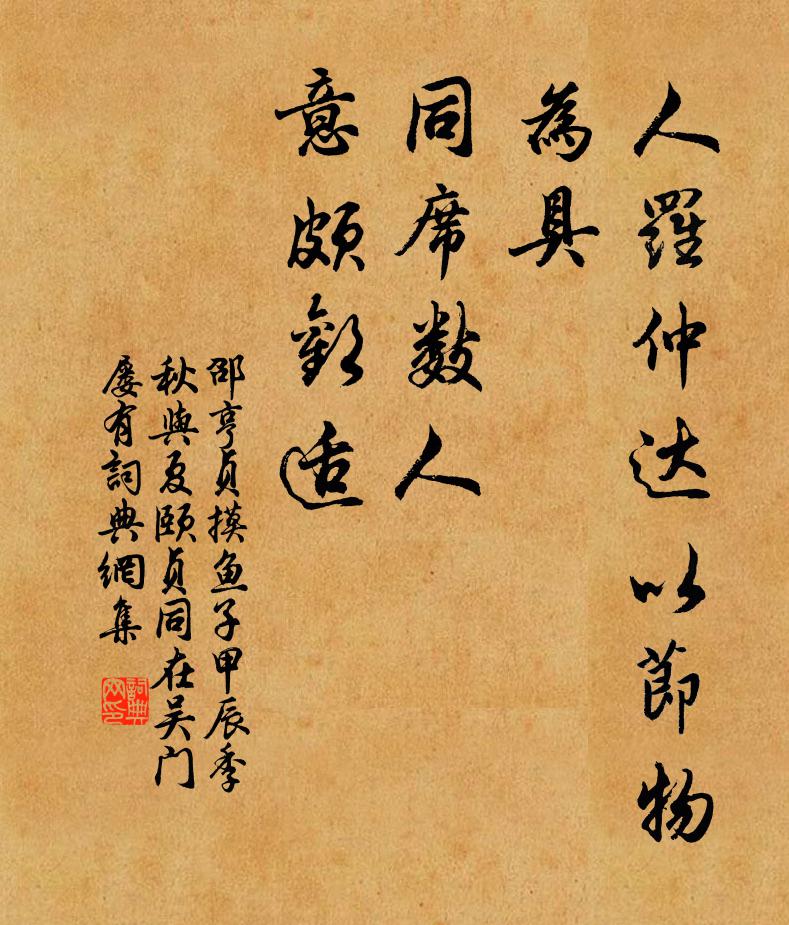 人羅仲达以節物
為具
同席数人
意頗歡适
邵亨貞摸鱼子甲辰季
秋與夏頤貞同在吴门
屡有詞典網集
詞典網印